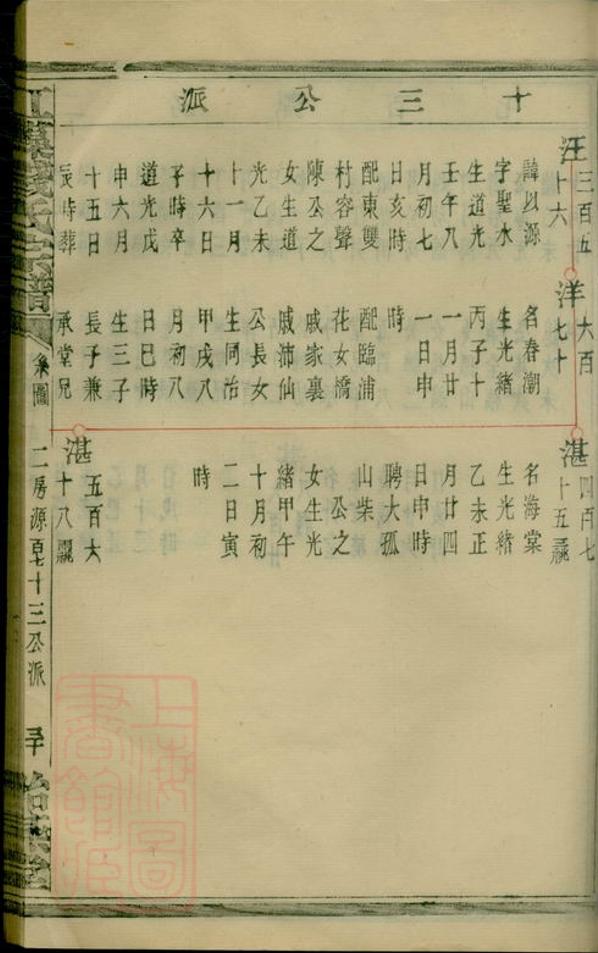 十三公派
汪三百五
十六
諱以源
字聖水
生道光
壬午八
月初七
日亥時
配東雙
村容聲
陳公之
女生道
光乙未
十一月
十六日
子時卒
道光戊
申六月
十五日
辰時葬
洋六百
七十
名春潮
生光緒
丙子十
一月廿
一日申
時
配臨浦
花女橋
戚家裏
戚沛仙
公長女
生同治
甲戌八
月初八
日巳時
生三子
長子兼
承堂兄
湛四百七
十五
名海棠
生光緒
乙未正
月廿四
日申時
聘大孤
山柴
公之
女生光
緒甲午
十月初
二日寅
時
湛五百六
十八
氏宗譜
系圖
二房源百七十三公派
上海圖書館藏